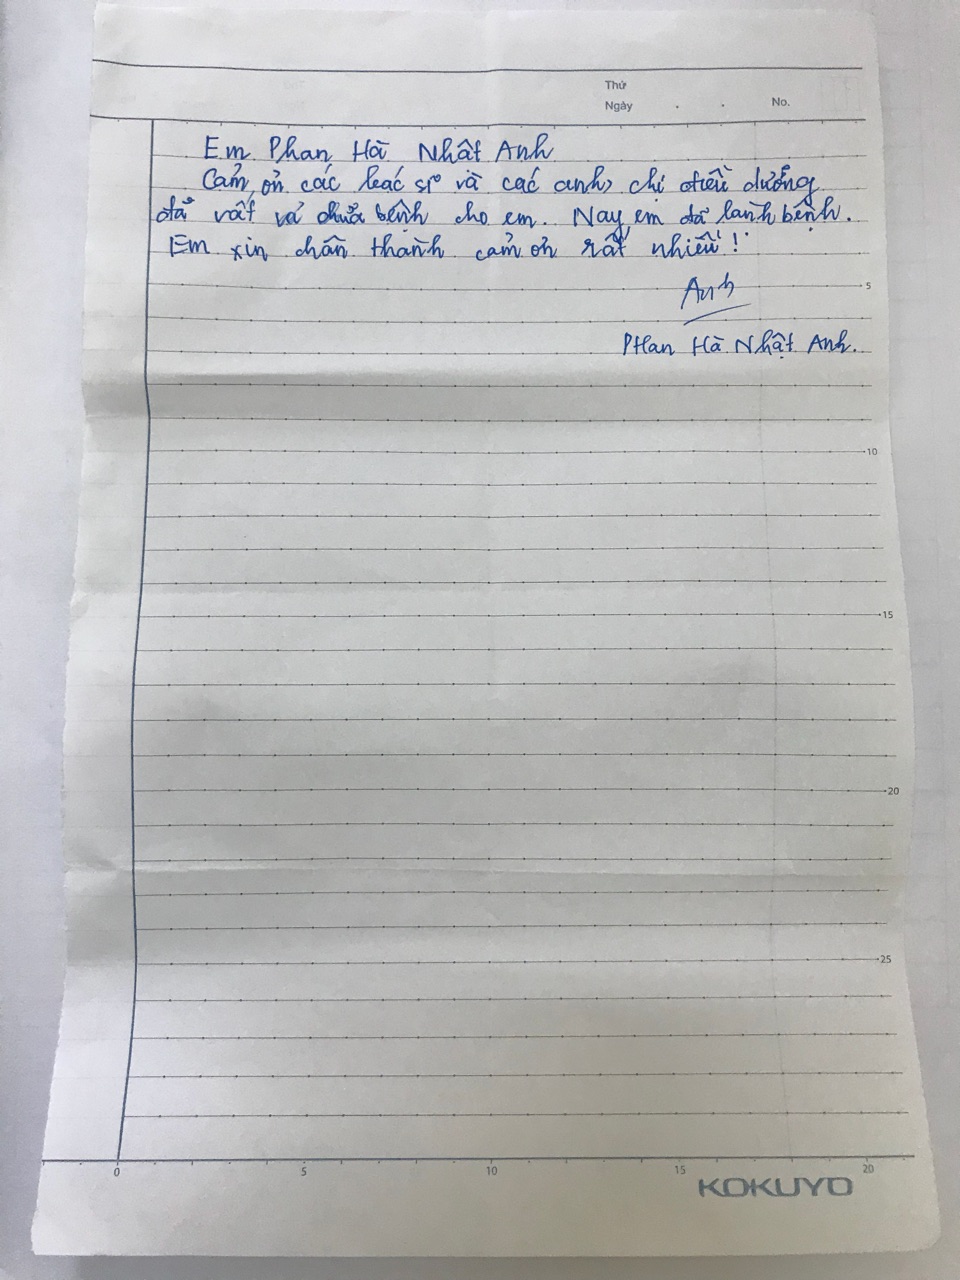 Thứ
Ngày . . No.
Em Phan Hà Nhật Anh
Cảm ơn các bác sĩ và các anh, chị điều dưỡng
đã vất vả chữa bệnh cho em. Nay em đã lành bệnh.
Em xin chân thành cảm ơn rất nhiều!
5
Anh
Phan Hà Nhật Anh.
10
15
20
25
0 5 10 15 20
KOKUYO